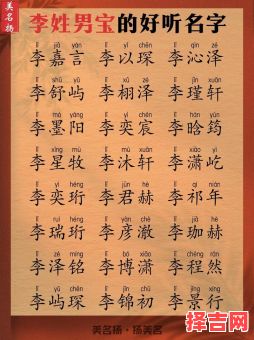 美名扬
李姓男宝的好听名字
lǐ jiā yán lǐ yǐ chēn lǐ qìn zé
李嘉言 李以琛 李沁泽
lǐ shū yǔ lǐ xǔ zé lǐ jǐn xuān
李舒屿 李栩泽 李瑾轩
lǐ mò yáng lǐ yì chén lǐ hán yún
李墨阳 李奕宸 李晗筠
lǐ xīng mù lǐ mù xuān lǐ xiāo yì
李星牧 李沐轩 李潇屹
lǐ yì héng lǐ jūn hè lǐ qí nián
李奕珩 李君赫 李祁年
lǐ ruì héng lǐ yàn chè lǐ jiā hè
李瑞珩 李彦澈 李珈赫
李泽铭 李博潇 李程然
lǐ yǔ chēn lǐ jǐn chū lǐ jǐng xíng
李屿琛 李锦初 李景行
美名扬·扬美名
择吉网